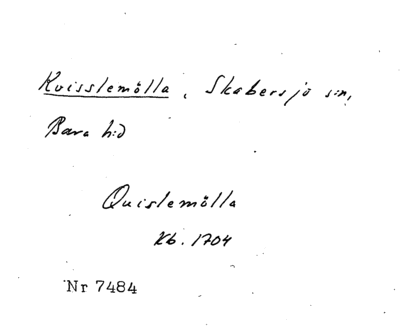 Kvisslemölla, Skabersjö s:n,
Bara h:d
Quislemölla
Kb. 1704
Nr 7484